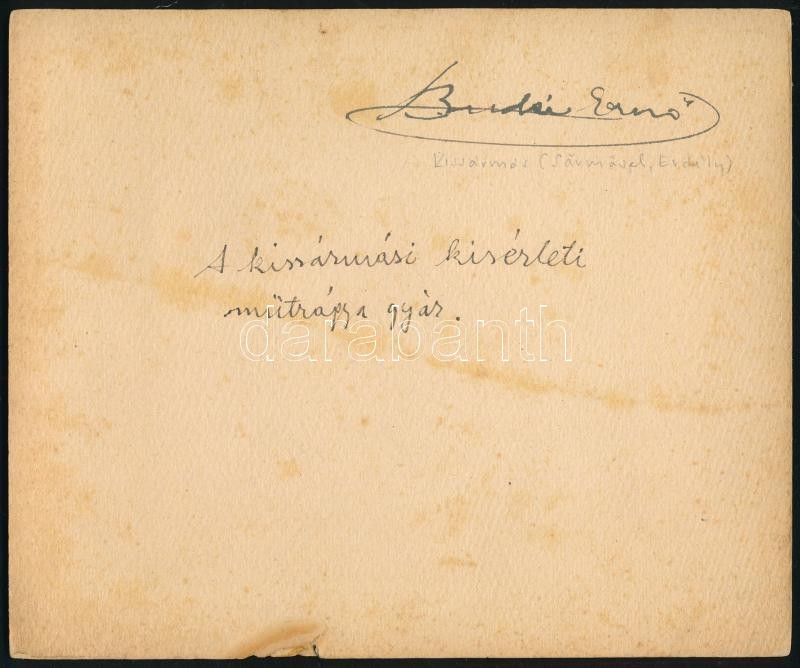 Budai Ernő
Kissármás (Sármásel, Erdély)
A kissármási kisérleti
műtrágya gyár.
darabanth